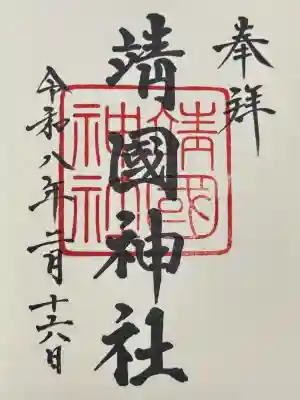 奉拝
靖國神社
靖國神社
令和八年二月十六日